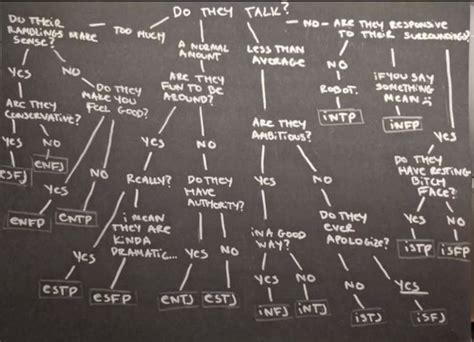 DO THEY TALK?
DO THEIR
RAMBLINGS MAKE
SENSE?
TOO MUCH
A NORMAL
AMOUNT
LESS THAN
AVERAGE
NO
ARE THEY RESPONSIVE
TO THEIR SURROUNDINGS?
YES
NO
DO THEY
MAKE YOU
FEEL GOOD?
ARE THEY
FUN TO BE
AROUND?
NO
ROBOT.
iNTP
iF YOU SAY
SOMETHING
MEAN :(
iNFP
YES
ARE THEY
CONSERVATIVE?
YES
NO
ESFJ
ENFJ
YES
NO
ENFP
ENTP
YES
NO
REALLY?
DO THEY
HAVE
AUTHORITY?
ARE THEY
AMBITIOUS?
YES
NO
DO THEY
HAVE RESTING
BITCH
FACE?
YES
NO
iSTP
iSFP
i MEAN
THEY ARE
KINDA
DRAMATIC...
YES
ESTP
ESFP
YES
NO
ENTJ
ESTJ
iN A GOOD
WAY?
YES
NO
iNFJ
iNTJ
DO THEY
EVER
APOLOGIZE?
NO
YES
iSTJ
iSFJ